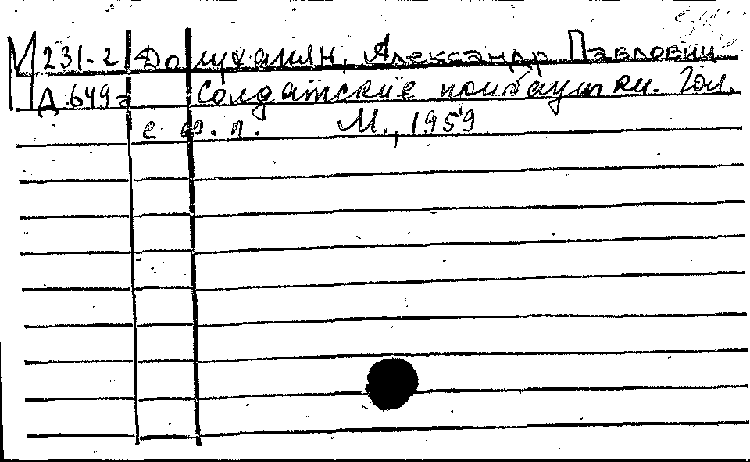 М231-2 Долуханян, Александр Павлович
Д 649 Солдатские прибаутки. Гол.
с ф.п. М., 1959